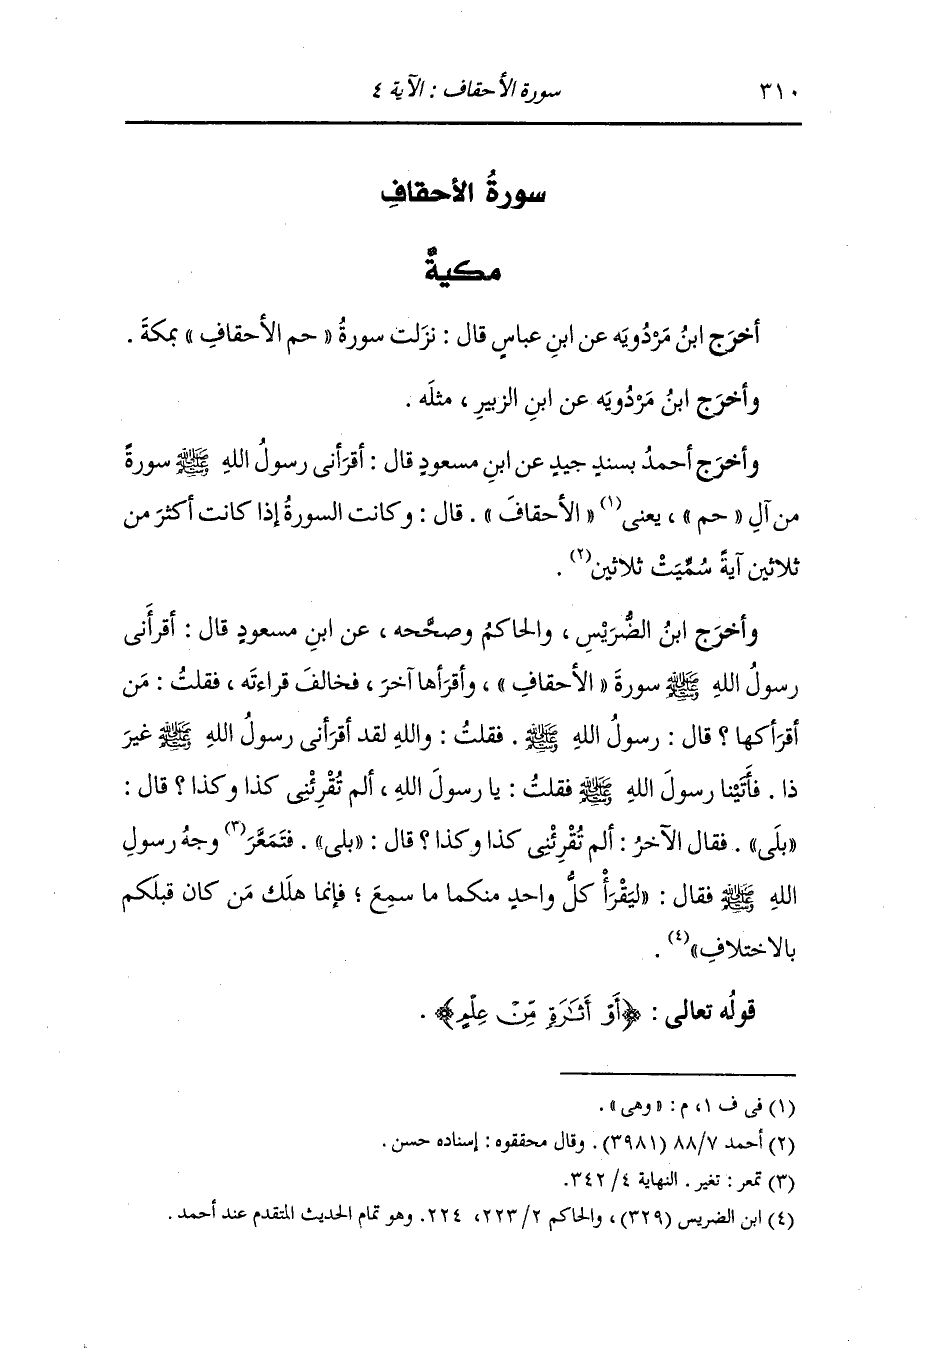 ٣١٠ سورة الأحقاف : الآية ٤
سورةُ الأحقافِ
مكيةٌ
أخرَج ابنُ مَرْدُويَه عن ابنِ عباسٍ قال : نزَلت سورةُ « حم الأحقافِ » بمكةَ .
وأخرَج ابنُ مَرْدُويَه عن ابنِ الزبيرِ ، مثلَه .
وأخرَج أحمدُ بسندٍ جيدٍ عن ابنِ مسعودٍ قال : أقرَأنى رسولُ اللهِ ﷺ سورةً
من آلِ « حم » ، يعنى(١) « الأحقافَ » . قال : وكانت السورةُ إذا كانت أكثرَ من
ثلاثين آيةً سُمِّيَتْ ثلاثين(٢) .
وأخرَج ابنُ الضُّرَيْسِ ، والحاكمُ وصحَّحه ، عن ابنِ مسعودٍ قال : أقرَأَنى
رسولُ اللهِ ﷺ سورةَ « الأحقافِ » ، وأقرَأها آخرَ ، فخالفَ قراءتَه ، فقلتُ : مَن
أقرَأكها ؟ قال : رسولُ اللهِ ﷺ . فقلتُ : واللهِ لقد أقرَأنى رسولُ اللهِ ﷺ غيرَ
ذا . فأَتَيْنا رسولَ اللهِ ﷺ فقلتُ : يا رسولَ اللهِ ، ألم تُقْرِئْنِى كذا وكذا ؟ قال :
«بلَى» . فقال الآخرُ : ألم تُقْرِئْنِى كذا وكذا ؟ قال : «بلى» . فتَمَعَّرَ(٣) وجهُ رسولِ
اللهِ ﷺ فقال : «ليَقْرَأْ كلُّ واحدٍ منكما ما سمِعَ ؛ فإنما هلَك مَن كان قبلَكم
بالاختلافِ»(٤) .
قولُه تعالى : ﴿أَوْ أَثَـٰرَةٍ مِّنْ عِلْمٍ﴾ .
(١) فى ف ١، م : « وهى » .
(٢) أحمد ٨٨/٧ (٣٩٨١) . وقال محققوه : إسناده حسن .
(٣) تمعر : تغير . النهاية ٤/ ٣٤٢.
(٤) ابن الضريس (٣٢٩) ، والحاكم ٢/ ٢٢٣، ٢٢٤. وهو تمام الحديث المتقدم عند أحمد .